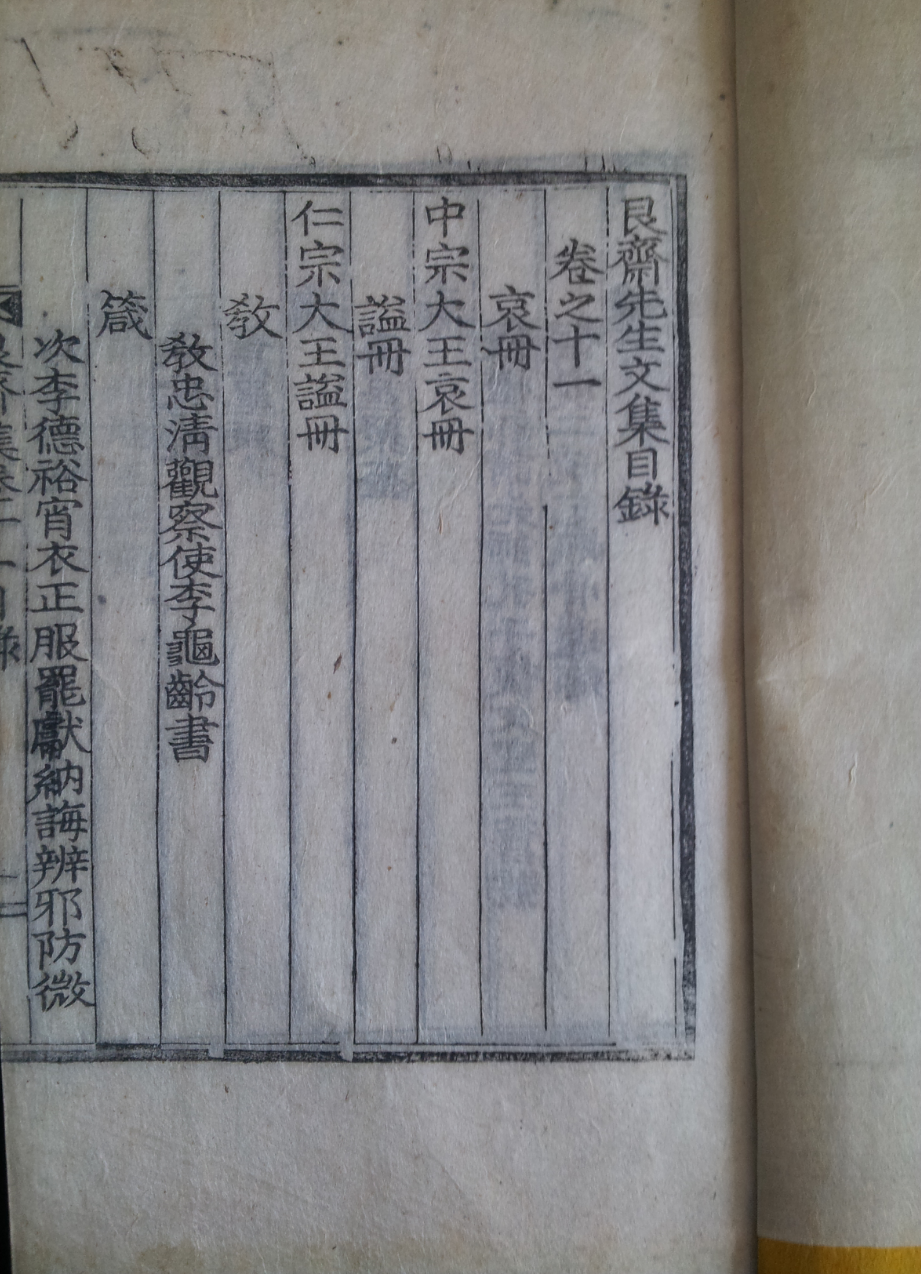 艮齋先生文集目錄
卷之十一
哀冊
中宗大王哀冊
謚冊
仁宗大王謚冊
敎
敎忠淸觀察使李龜齡書
箴
次李德裕宵衣正服罷獻納誨辨邪防微